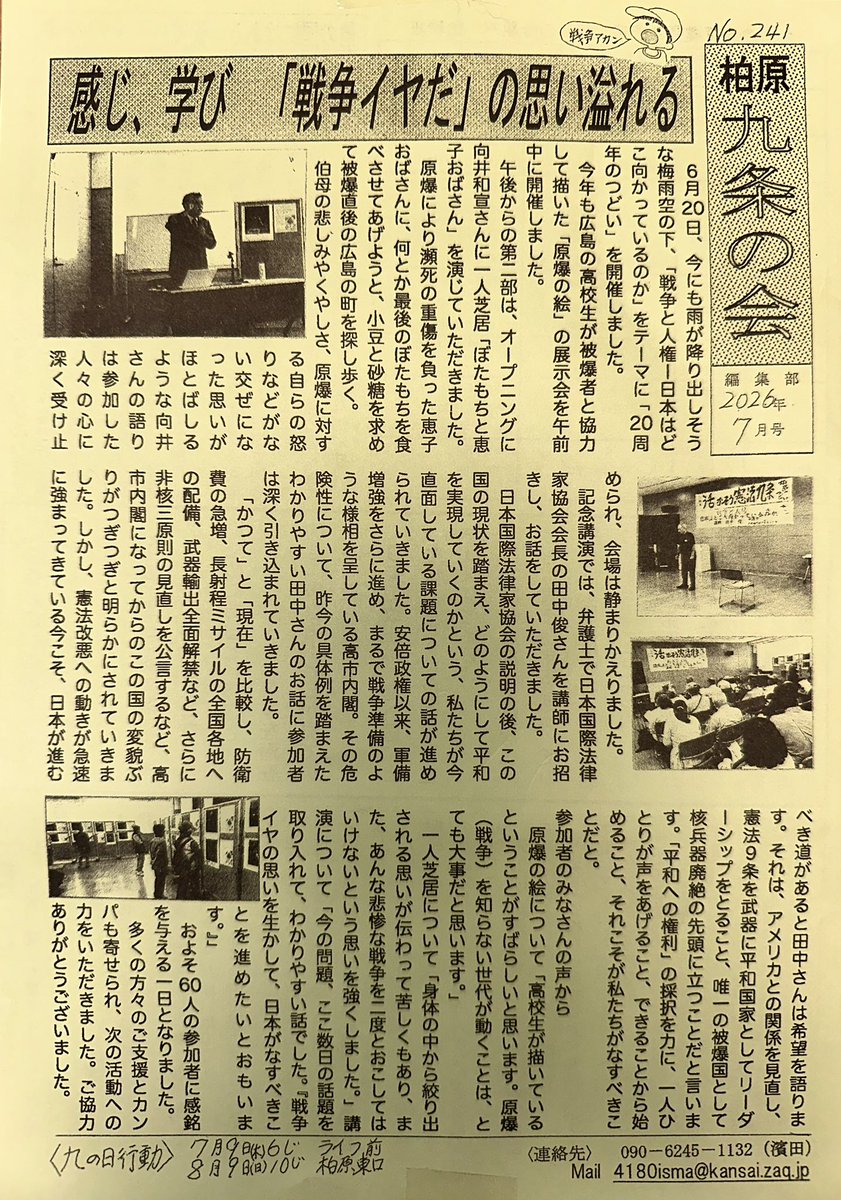 戦争アカン
No.241
柏原
九条の会
編集部
2026年
7月号
感じ、学び 「戦争イヤだ」の思い溢れる
6月20日、今にも雨が降り出しそう
な梅雨空の下、「戦争と人権ー日本はど
こ向かっているのか」をテーマに「20周
年のつどい」を開催しました。
今年も広島の高校生が被爆者と協力
して描いた「原爆の絵」の展示会を午前
中に開催しました。
午後からの第二部は、オープニングに
向井和宣さんに一人芝居「ぼたもちと恵
子おばさん」を演じていただきました。
原爆により瀕死の重傷を負った恵子
おばさんに、何とか最後のぼたもちを食
べさせてあげようと、小豆と砂糖を求め
て被爆直後の広島の町を探し歩く。
伯母の悲しみやくやしさ、原爆に対す
る自らの怒
りなどがな
い交ぜにな
った思いが
ほとばしる
ような向井
さんの語り
は参加した
人々の心に
深く受け止
められ、会場は静まりかえりました。
記念講演では、弁護士で日本国際法律
家協会会長の田中俊さんを講師にお招
きし、お話をしていただきました。
日本国際法律家協会の説明の後、この
国の現状を踏まえ、どのようにして平和
を実現していくのかという、私たちが今
直面している課題についての話が進め
られていきました。安倍政権以来、軍備
増強をさらに進め、まるで戦争準備のよ
うな様相を呈している高市内閣。その危
険性について、昨今の具体例を踏まえた
わかりやすい田中さんのお話に参加者
は深く引き込まれていきました。
「かつて」と「現在」を比較し、防衛
費の急増、長射程ミサイルの全国各地へ
の配備、武器輸出全面解禁など、さらに
非核三原則の見直しを公言するなど、高
市内閣になってからのこの国の変貌ぶ
りがつぎつぎと明らかにされていきま
した。しかし、憲法改悪への動きが急速
に強まってきている今こそ、日本が進む
べき道があると田中さんは希望を語りま
す。それは、アメリカとの関係を見直し、
憲法9条を武器に平和国家としてリーダ
ーシップをとること、唯一の被爆国として
核兵器廃絶の先頭に立つことだと言いま
す。「平和への権利」の採択を力に、一人ひ
とりが声をあげること、できることから始
めること、それこそが私たちがなすべきこ
とだと。
参加者のみなさんの声から
原爆の絵について「高校生が描いている
ということがすばらしいと思います。原爆
(戦争)を知らない世代が動くことは、と
ても大事だと思います。」
一人芝居について「身体の中から絞り出
される思いが伝わって苦しくもあり、ま
た、あんな悲惨な戦争を二度とおこしては
いけないという思いを強くしました。」講
演について「今の問題、ここ数日の話題を
取り入れて、わかりやすい話でした。『戦争
イヤの思いを生かして、日本がなすべきこ
とを進めたいとおもいま
す。』」
およそ60人の参加者に感銘
を与える一日となりました。
多くの方々のご支援とカン
パも寄せられ、次の活動への
力をいただきました。ご協力
ありがとうございました。
活かそう憲法九条
〈九の日行動〉 7月9日(木)6じ ライフ前
8月9日(日)10じ 柏原東口
〈連絡先〉 090-6245-1132(濱田)
Mail 4180isma@kansai.zaq.jp